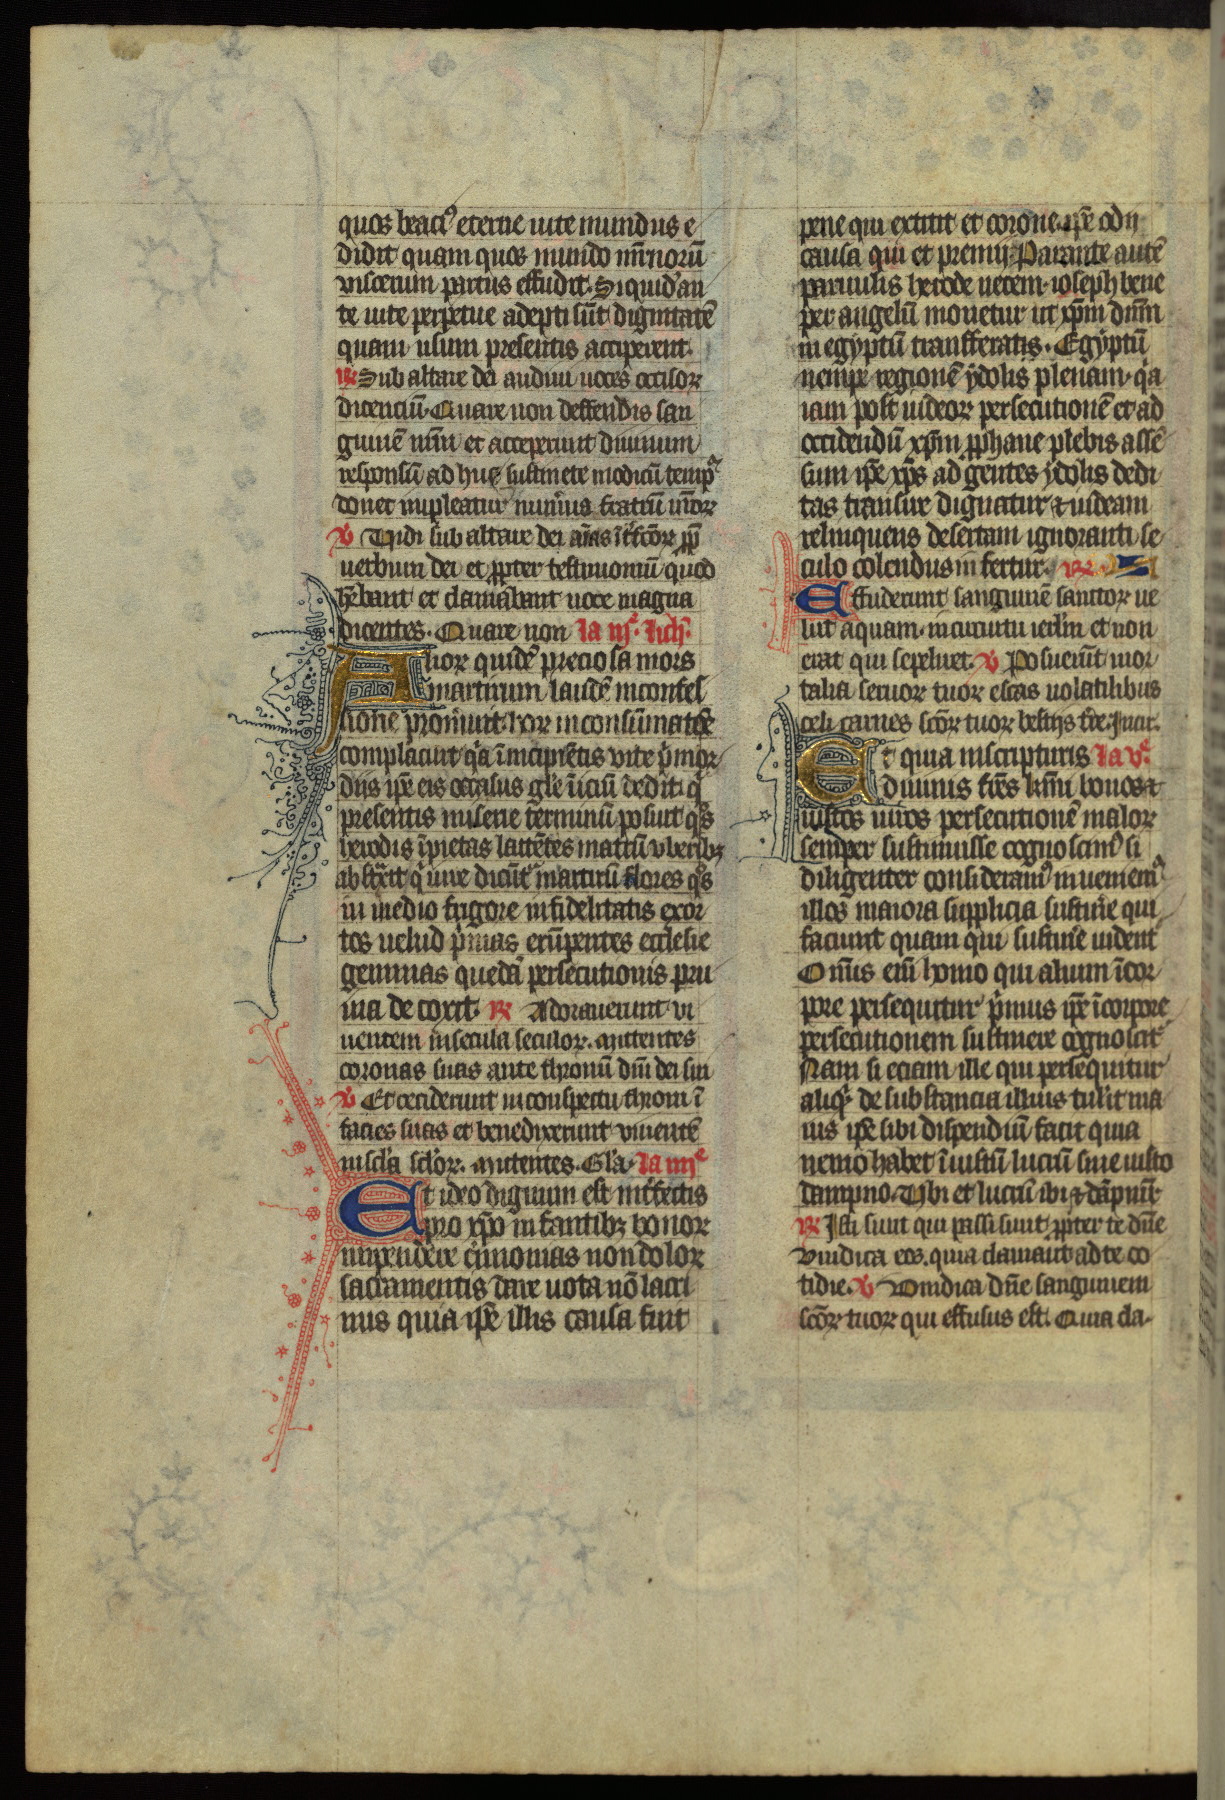 quos beaci⁹ eterne uite mundus e
didit quam quos mundo mr̄norū
viscerum partus effudit. Siquid' an
te uite perpetue adepti sūt dignitatē
quam usum presentis acciperent.
℟ Sub altare dei audiui uoces occisoꝝ
dicenciū. Quare non deffendis san
guinē nr̄m et acceperunt diuinum
responsū ad huc sustinete modicū temp
donec impleatur numerus fratrū vr̄oꝝ
℣ Vidi sub altare dei aīas īt'fc̄oꝝ ꝓp̄
uerbum dei et ꝓpter testimonium quod
hēbant et clamabant uoce magna
dicentes. Quare non la iijᵃ. Ioh̄.
Alioꝝ quidē preciosa mors
martirum laudē in confes
sione promeruit. hoꝝ in consūmatōe
complacuit q̄a ī incipiētis vite p̄mor
diis ip̄e eis occasus gl'e īiciū dedit. q̄
presentis miserie terminū posuit q̄s
herodis īpietas lactētes matrū vberibꝫ
abstraxit q̄ iure dicūt' martirū flores q̄s
in medio frigore infidelitatis exor
tos uelud p̄mas erūpentes ecclesie
gemmas quedā persecutionis pru
ina decoxit. ℟ Adorauerunt vi
uentem in secula seculoꝝ. mittentes
coronas suas ante thronū dn̄i dei sui
℣ Et ceciderunt in conspectu throni ī
facies suas et benedixerunt viuentē
in sc̄la sc̄loꝝ. mittentes. Gl'a. la iiijᵃ
Et ideo dignum est int'fectis
pro xp̄o infantibꝫ honor
impendere c̄imonias non dolor
sacramentis dare uota nō lacri
mis quia ip̄e illis causa fuit
pene qui extitit et corone. ip̄e odij
causa qui et premij. Parante autē
paruulis herode necem. ioseph bene
per angelū monetur ut xp̄m dn̄m
in egyptū transferatis. Egyptū
nempe regionē ydolis plenam. q̄a
iam post iudeoꝝ persecutionē et ad
occidendū xp̄m ꝓphane plebis assē
sum ip̄e xp̄s ad gentes ydolis dedi
tas transire dignatur ⁊ iudeam
relinquens desertam ignoranti se
culo colendus infertur. ℟
Effuderunt sanguinē sanctoꝝ ue
lut aquam. in circuitu ierl̄m et non
erat qui sepeliret. ℣ Posuerūt mor
talia seruoꝝ tuoꝝ escas uolatilibus
celi carnes sc̄oꝝ tuoꝝ bestijs t're. In circ.
Et quia in scripturis la vᵃ.
diuinis fr̄es kr̄mi bonos ⁊
iustos uiros persecutionē maloꝝ
semper sustinuisse cognoscim⁹ si
diligenter consideram⁹ inueniem⁹
illos maiora supplicia sustin'e qui
faciunt quam qui sustin'e uident
Omīs eīm homo qui alium ī cor
pore persequitur p̄mus ip̄e ī corpore
persecutionem sustinere cognoscit'
Nam si eciam ille qui persequitur
aliqͥd de substancia illius tulerit ma
ius ip̄e sibi dispendiū facit quia
nemo habet ī iustū lucrū sine iusto
dampno. Vbi et lucrū ibi ⁊ dāpnūt
℟ Isti sunt qui passi sunt ꝓpter te dn̄e
vindica eos. quia clamant ad te co
tidie. ℣ Vindica dn̄e sanguinem
sc̄oꝝ tuoꝝ qui effusus est. Quia cla-